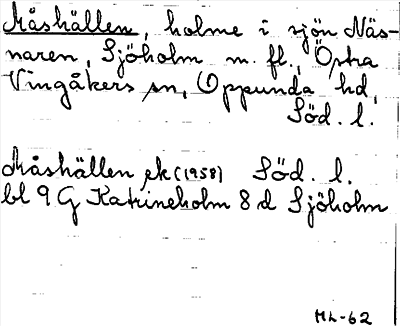 Måshällen, holme i sjön Näs-
naren, Sjöholm m. fl., Östra
Vingåkers sn, Oppunda hd,
Söd. l.
Måshällen ek (1958) Söd. l.
bl 9 G Katrineholm 8 d Sjöholm
ML-62